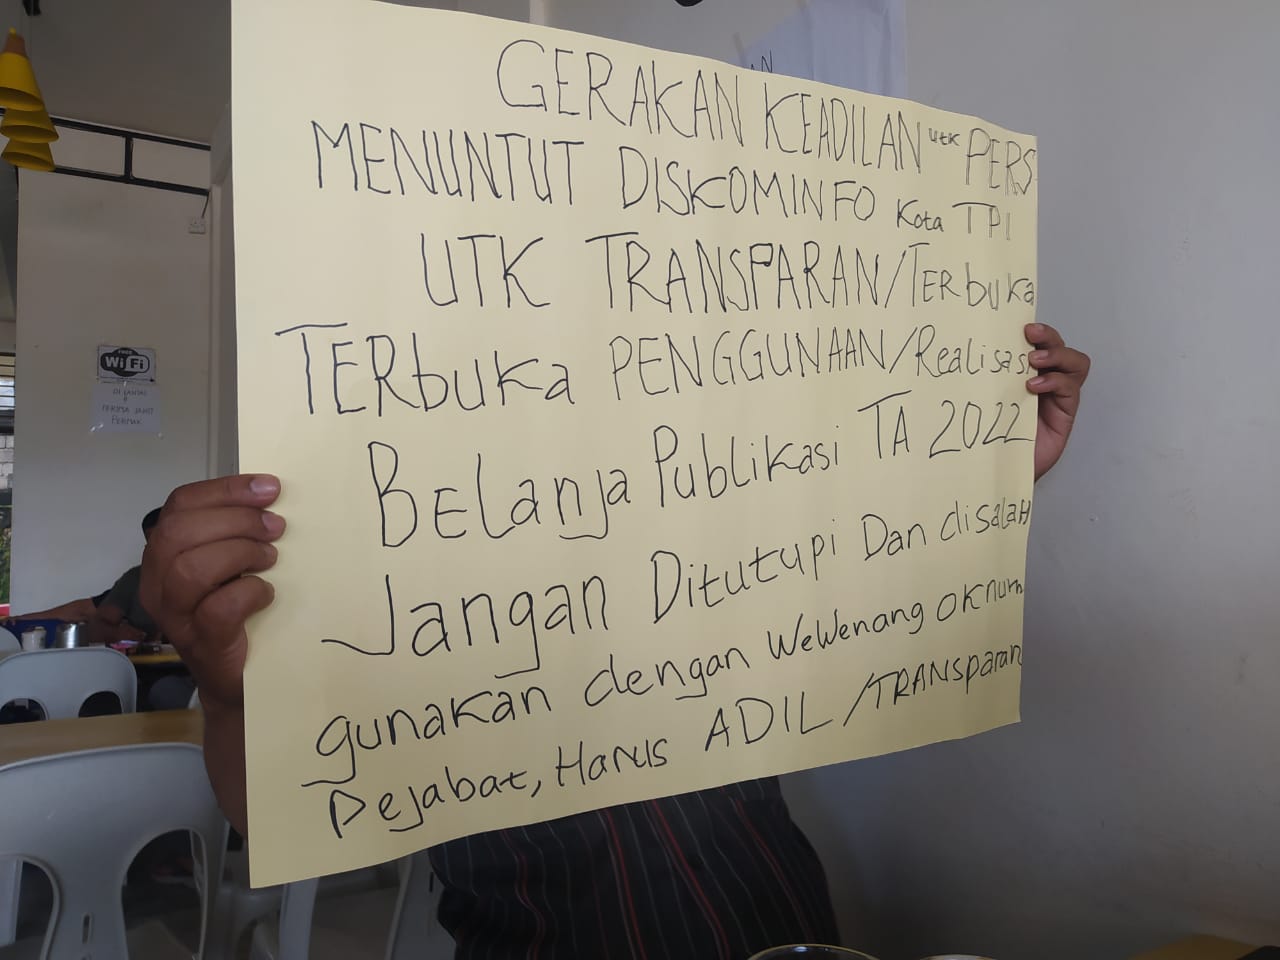 GERAKAN KEADILAN utk PERS
MENUNTUT DISKOMINFO Kota TPI
UTK TRANSPARAN/TERbuka
TERbuka PENGGUNAAN/Realisasi
BElanja Publikasi TA 2022
Jangan Ditutupi Dan disalaH
gunakan dengan WeWenang oknum
Pejabat, Harus ADIL/TRANSparan
AN
FREE
Wi Fi
DI LANTAI
TERIMA JAHIT
PERMAK